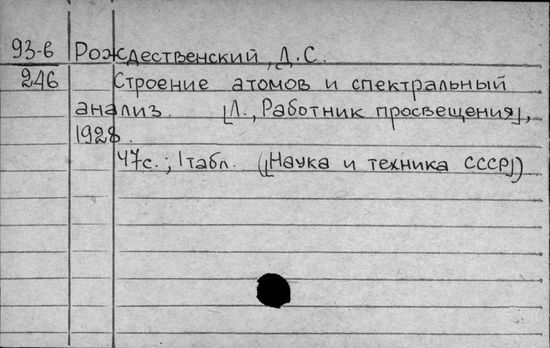 93-6 Рождественский, Д.С.
246 Строение атомов и спектральный
анализ. [Л., Работник просвещения],
1928.
47с.; 1 табл. ([Наука и техника СССР])